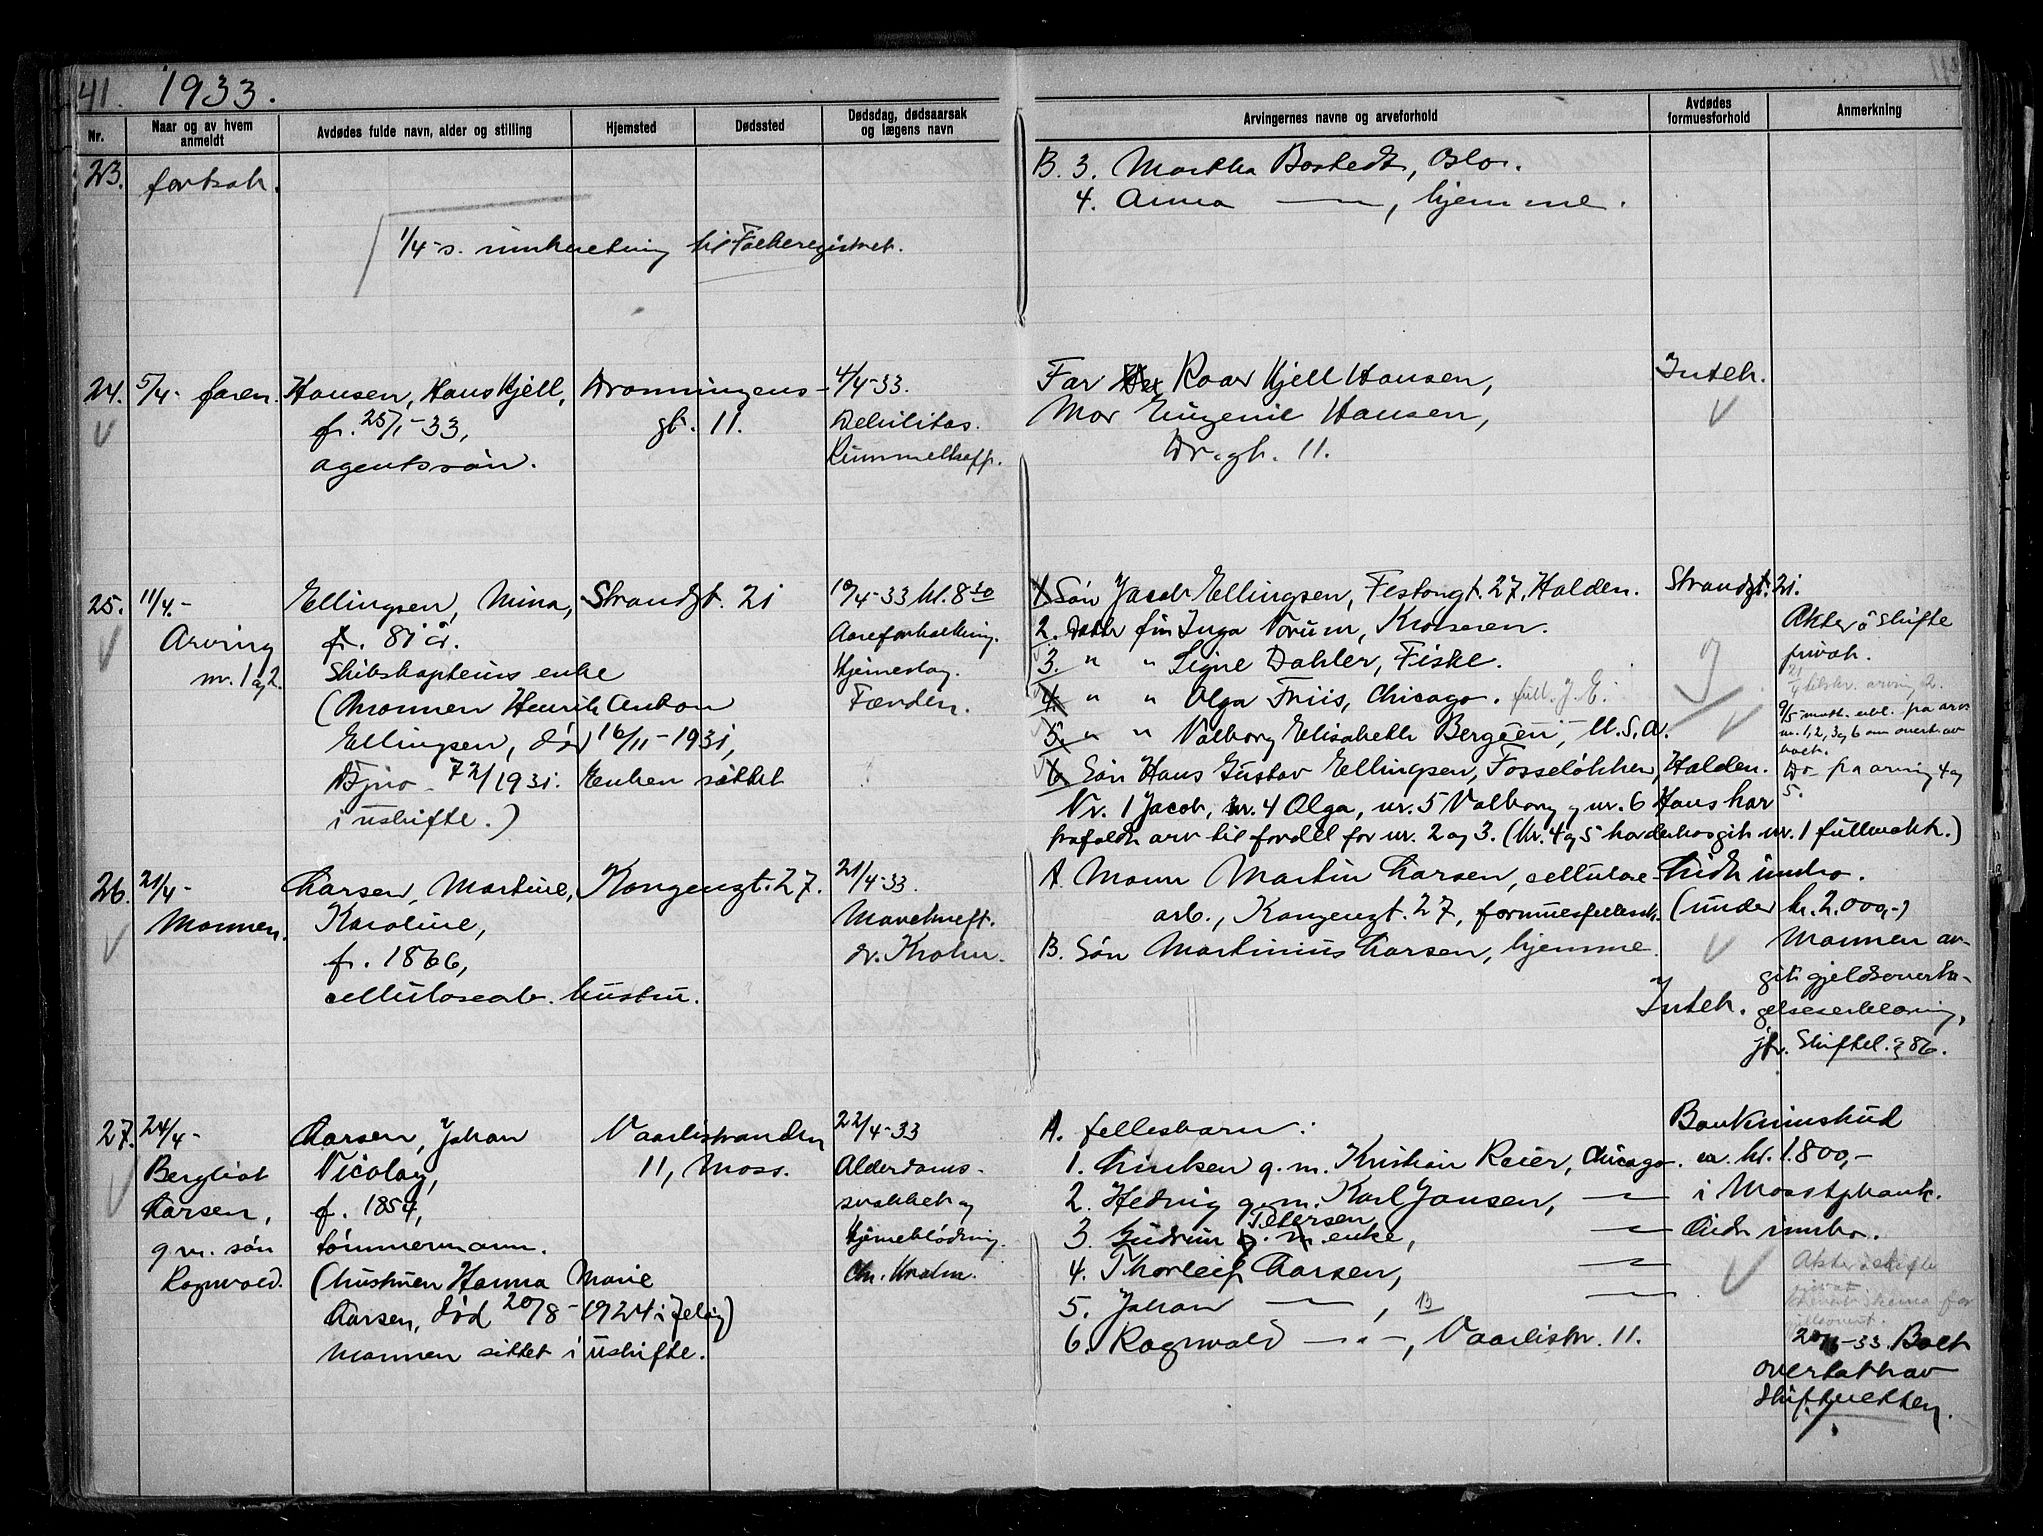 41. 1933.
Nr.
Naar og av hvem anmeldt
Avdødes fulde navn, alder og stilling
Hjemsted
Dødssted
Dødsdag, dødsaarsak og lægens navn
Arvingernes navne og arveforhold
Avdødes formuesforhold
Anmerkning
23. fortsat.
B. 3. Martha Bostedt, Oslo.
4. Anna —"—, hjemme.
1/4-s. innberetning til Folkeregistret.
24. 5/4- faren.
Hansen, Hans Kjell,
f. 25/1-33,
agentsøn.
Dronningens-
gt. 11.
4/4-33.
Debilitas.
Rummelhoff.
Far Roar Kjell Hansen,
Mor Eugenie Hansen,
Dr.gt. 11.
Intet.
25. 11/4.-
Arving
nr. 1 og 2.
Ellingsen, Mina,
f. 81 år.
Skibskapteins enke
(Mannen Henrik Anton
Ellingsen, død 16/11-1931,
Enken sittet
i uskifte.)
Strandgt. 21
10/4-33 kl. 8 30
Aareforkalkning.
Hjerneslag.
Færden.
1. Søn Jacob Ellingsen, Festongt. 27, Halden.
2. Datter fru Inga Vorum, Kroksren.
3. " " Signe Dahler, Fiske.
4. " " Olga Friis, Chicago. full. J. E.
5. " " Valborg Elisabeth Bergeen, U.S.A.
6. Søn Hans Gustav Ellingsen, Fosseløkken, Halden.
Nr. 1 Jacob, nr. 4 Olga, nr. 5 Valborg og nr. 6 Hans har
frafaldt arv til fordel for nr. 2 og 3. (Nr. 4 og 5 har derhos git nr. 1 fullmakt.)
Strandgt. 21.
Akter i Skifte
privat.
21/4 tilskr. arving 2.
9/5 mott. erkl. fra arv.
nr. 1, 2, 3 og 6 om overt. av
boet.
Do- fra arving 4 og
5.
26. 21/4-
Mannen.
Larsen, Martine,
Karoline,
f. 1866,
cellulosearb. hustru.
Kongensgt. 27.
21/4-33.
Mavekreft.
dr. Krohn.
A. Mann Martin Larsen, cellulose-
arb., Kongensgt. 27, formuesfellesk.
B. Søn Martinius Larsen, hjemme.
Litt innbo.
(under kr. 2.000,-)
Intet.
Mannen av-
git gjeldsoverta-
gelseserklæring,
jfr. Skiftel. § 86.
27. 24/4-
Bergliot
Larsen,
g m. søn
Ragnvald.
Larsen, Johan
Nicolay,
f. 1854,
tømmermann.
(hustruen Hanna Marie
Larsen, død 20/8-1924 i Jeløy)
Mannen sittet i uskifte.
Vaarlistranden
11, Moss.
22/4-33
Alderdoms-
svakhet og
Hjerneblødning.
Chr. Krohn.
A. fellesbarn:
1. Lucken g. m. Kristian Reier, Chicago.
2. Hedvig g. m. Karl Jansen, —"—
3. Gudrun Petersen, enke, —"—
4. Thorleif Larsen, —"—
5. Johan —"—, —"—
6. Ragnvald —"—, Vaarlistr. 11.
Bankinnskud
ca. kr. 1.800,-
i Moss Spbank.
Litt innbo.
Akter i skifte
privat
20/6-33 Boet
overtatt av
Skifteretten.